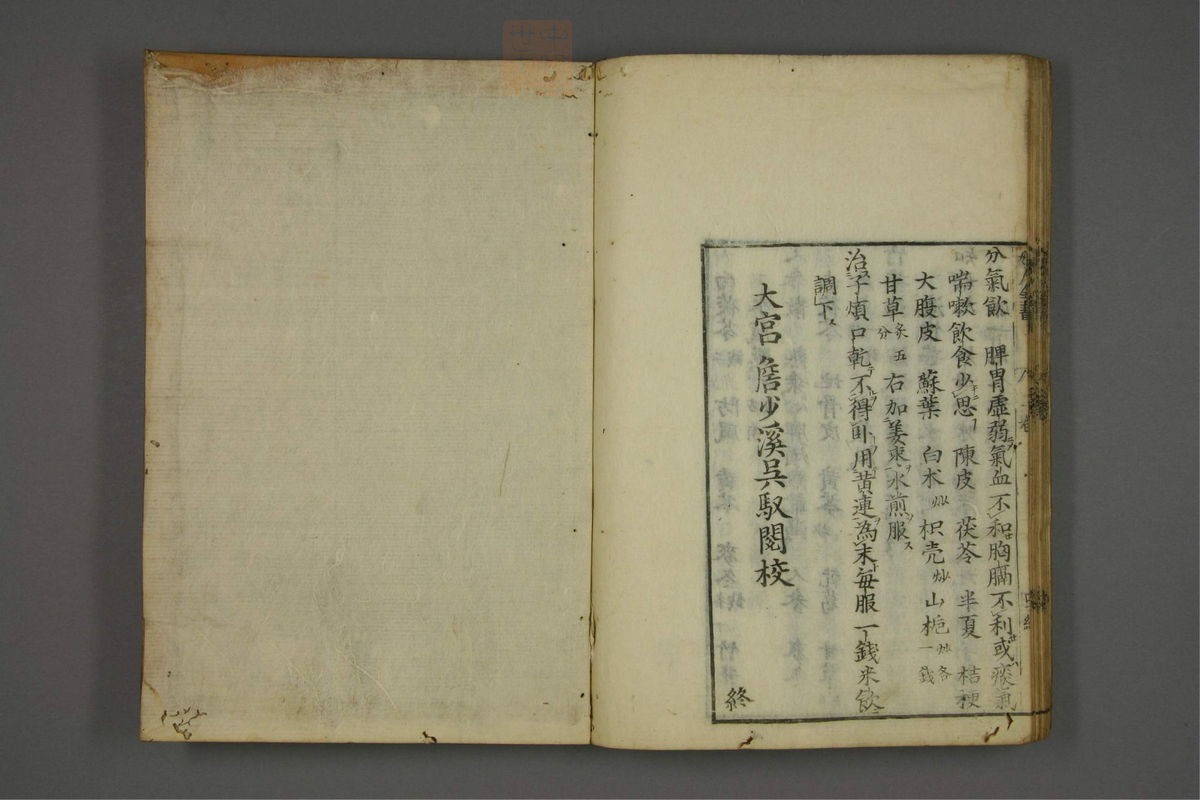 分氣飲　脾胃虛弱氣血不和胸膈不利或痰氣
喘嗽飲食少思　陳皮　茯苓　半夏　桔梗
大腹皮　蘇葉　白朮炒　枳壳炒　山梔炒各一錢
甘草炙五分　右加姜棗水煎服
治子煩口乾不得卧用黄連為末每服一錢米飲
調下
大宮詹少溪吳馭閱校
終